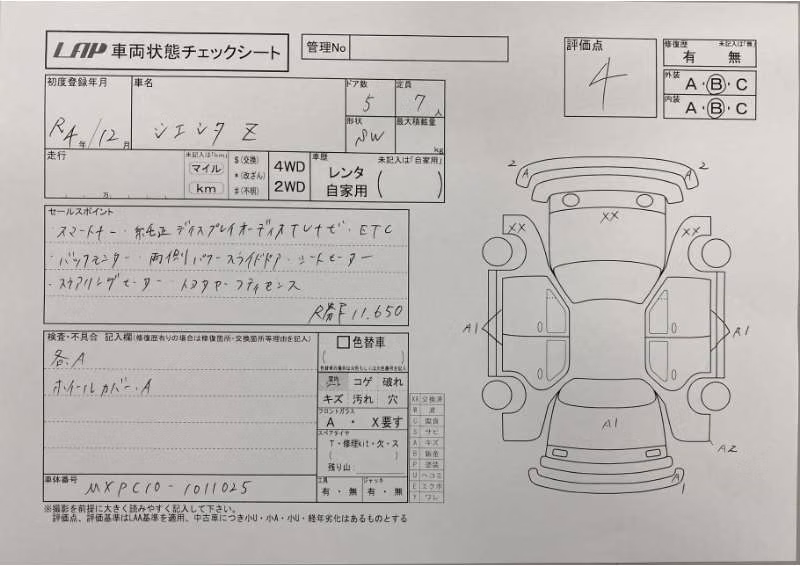 LAP 車両状態チェックシート
管理No
評価点
4
修復歴 未記入は「無」
有 無
外装 A・B・C
内装 A・B・C
初度登録年月
R4年/12月
車名
シエンタ Z
ドア数
5
定員
7人
形状
SW
最大積載量
kg
走行
万
未記入は「km」
マイル
km
$(交換)
*(改ざん)
#(不明)
4WD
2WD
車歴 未記入は「自家用」
レンタ
自家用
セールスポイント
・スマートキー・純正ディスプレイオーディオTVナビ・ETC
・バックモニター・両側パワースライドドア・シートヒーター
・ステアリングヒーター・トヨタセーフティセンス
R券 ¥11.650
検査・不具合 記入欄(修復歴有りの場合は修復箇所・交換箇所等理由を記入)
各.A
ホイールカバー.A
色替車
コゲ 破れ
キズ 汚れ 穴
フロントガラス
A ・ X要す
スペアタイヤ
T・修理kit・欠・ス
残り山:
工具
有・無
ジャッキ
有・無
XX 交換済
A キズ
B 鈑金
P 塗装
U ヘコミ
E エクボ
Y ワレ
車体番号
MXPC10-1011025
※撮影を前提に大きく読みやすく記入して下さい。
評価点、評価基準はLAA基準を適用、中古車につき小U・小A・小U・経年劣化はあるものとする
2 A
A 2
XX
XX
A1
A1
A1
A2
A1